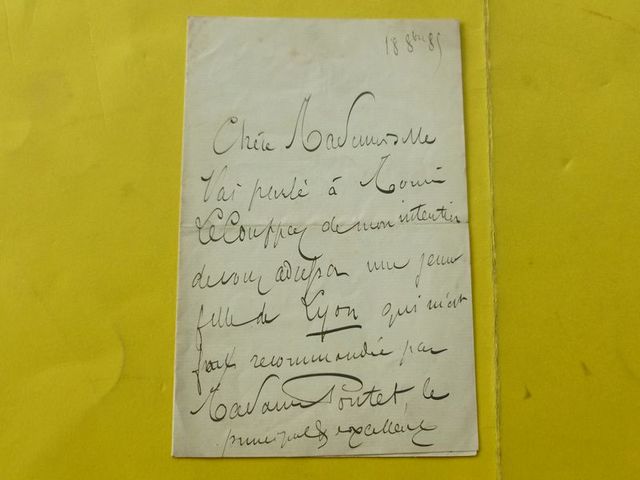 18 8bre 85
Chère Mademoiselle
J'ai parlé à Mons
Le Couppey de mon intention
de vous adresser une jeune
fille de Lyon qui m'est
recommandée par
Madame Pontet, le